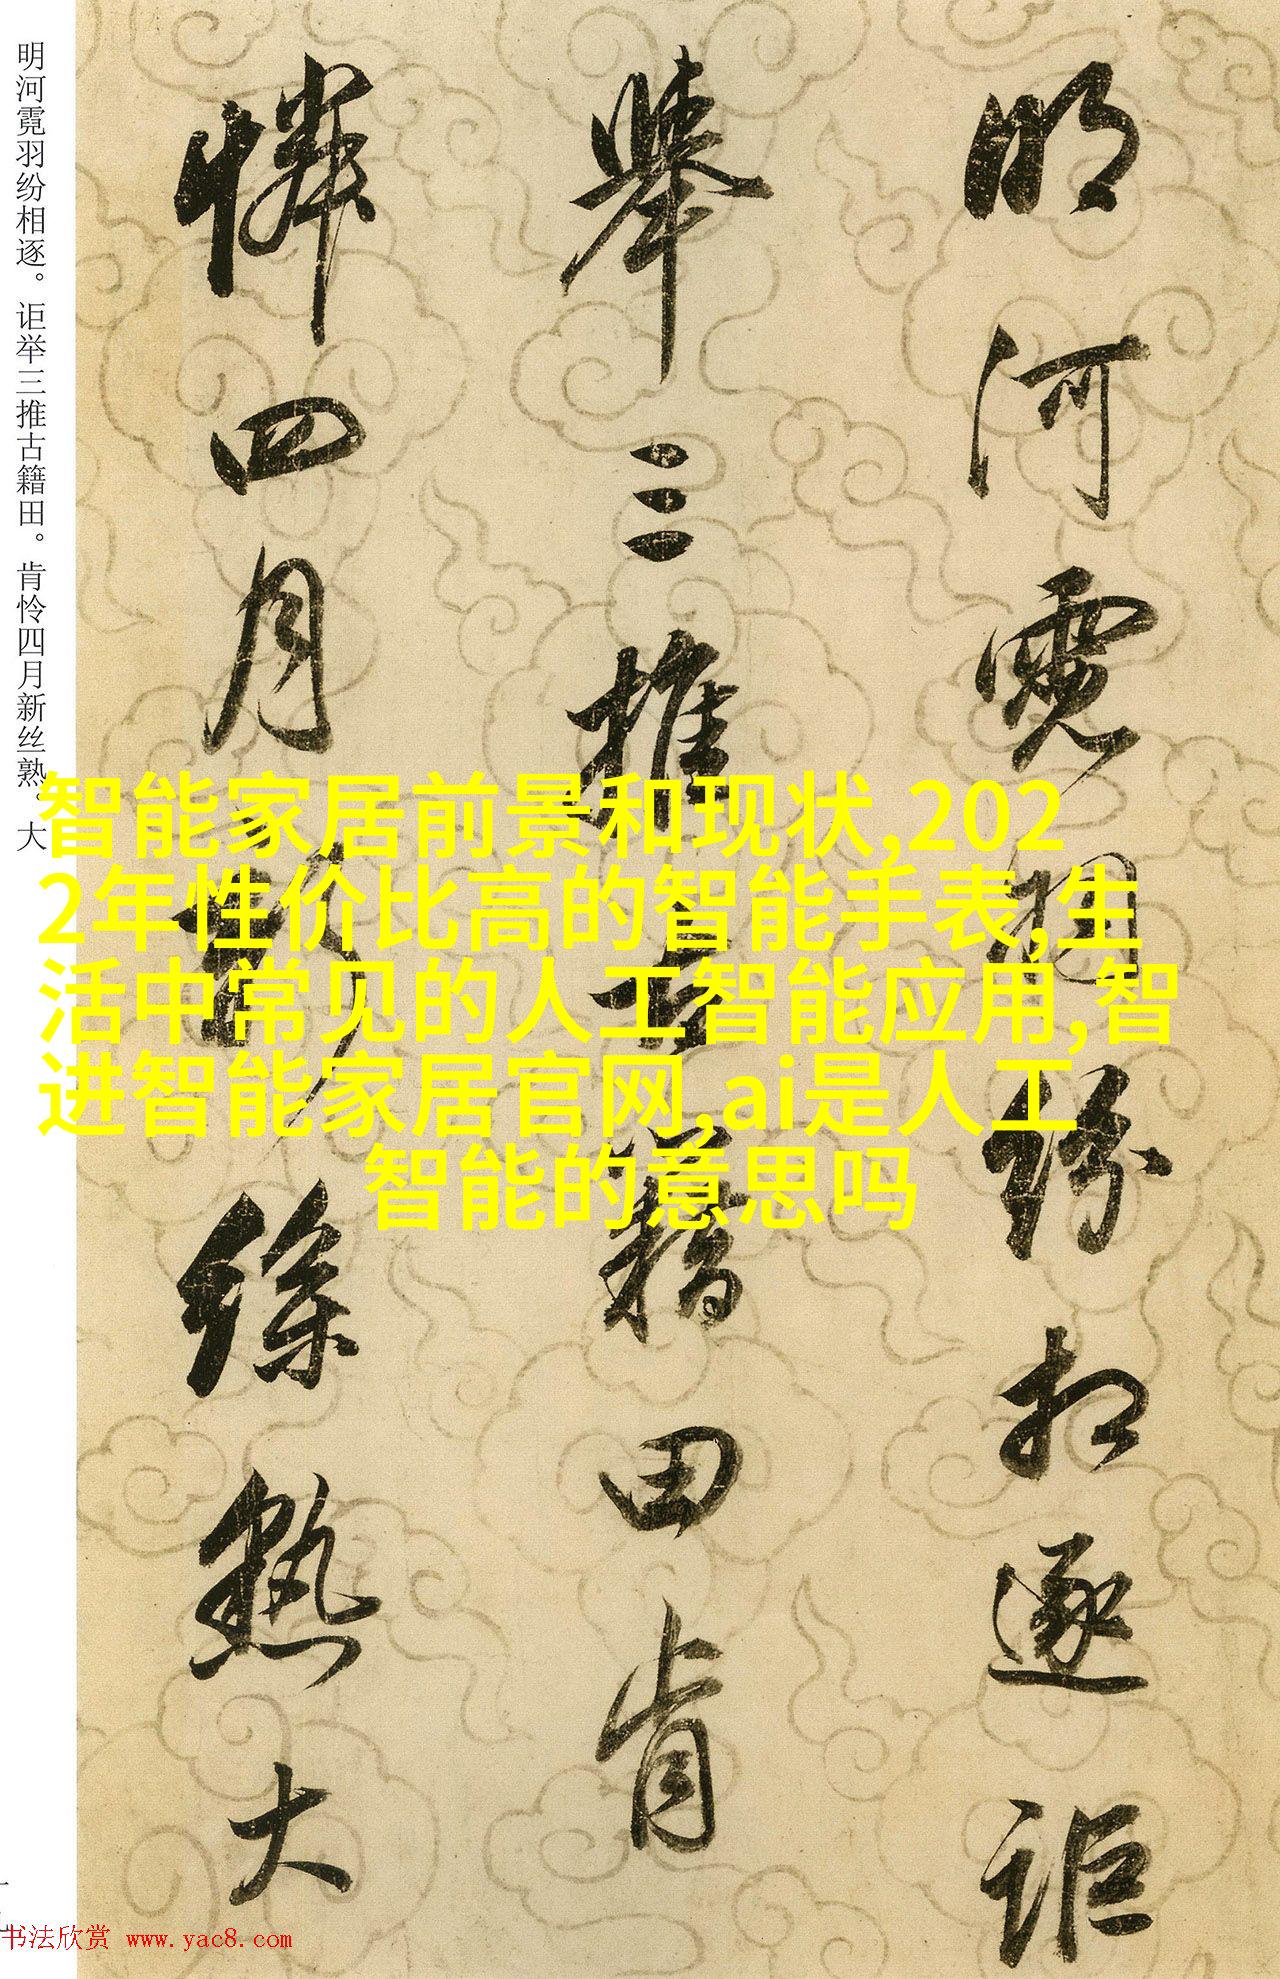 明河霓羽纷相逐。讵举三推古籍田。肯怜四月新丝熟。大
明河霓羽紛相逐詎
舉三推古籍田肯
憐四月新絲熟大
智能家居前景和现状,202
2年性价比高的智能手表,生
活中常见的人工智能应用,智
进智能家居官网,ai是人工
智能的意思吗
书法欣赏 www.yac8.com